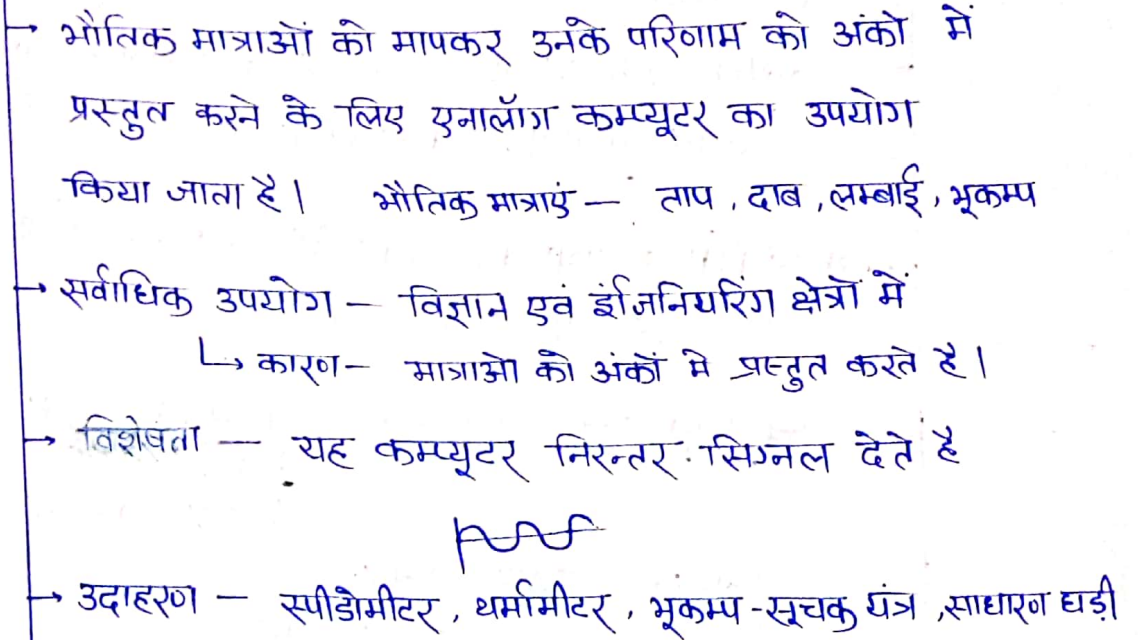 → भौतिक मात्राओं को मापकर उनके परिणाम को अंको में
प्रस्तुत करने के लिए एनालॉग कम्प्यूटर का उपयोग
किया जाता है। भौतिक मात्राएं — ताप, दाब, लम्बाई, भूकम्प
→ सर्वाधिक उपयोग — विज्ञान एवं इंजिनियरिंग क्षेत्रों में
↳ कारण — मात्राओ को अंकों मे प्रस्तुत करते है।
→ विशेषता — यह कम्प्यूटर निरन्तर सिग्नल देते है
→ उदाहरण — स्पीडोमीटर, थर्मामीटर, भूकम्प-सूचक यंत्र, साधारण घड़ी